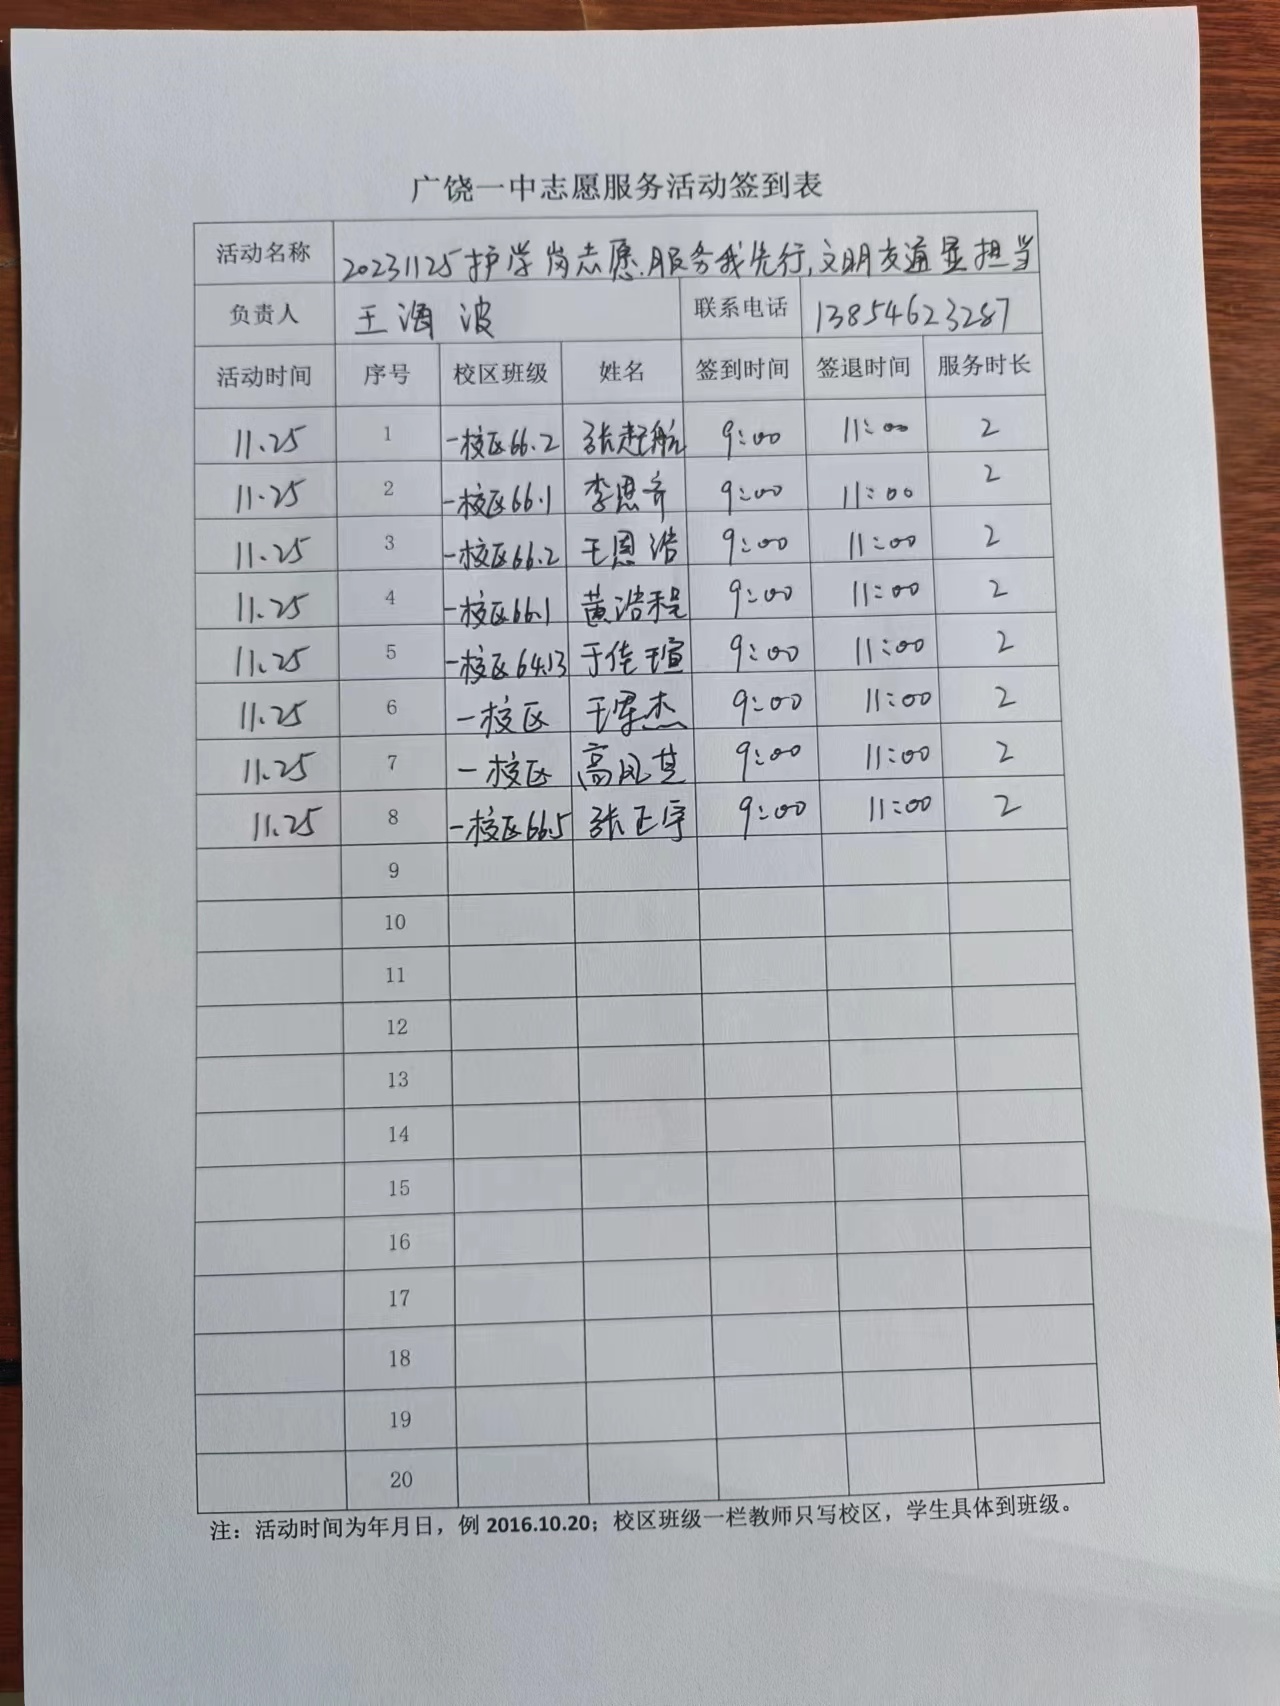 广饶一中志愿服务活动签到表
活动名称 20231125护学岗志愿服务我先行,文明交通显担当
负责人 王海波 联系电话 13854623287
活动时间 序号 校区班级 姓名 签到时间 签退时间 服务时长
11.25 1 一校区66.2 张起航 9:00 11:00 2
11.25 2 一校区66.1 李思齐 9:00 11:00 2
11.25 3 一校区66.2 王恩浩 9:00 11:00 2
11.25 4 一校区66.1 黄浩程 9:00 11:00 2
11.25 5 一校区64.13 于佳瑄 9:00 11:00 2
11.25 6 一校区 王 杰 9:00 11:00 2
11.25 7 一校区 高风芝 9:00 11:00 2
11.25 8 一校区66.5 张正宇 9:00 11:00 2
9
10
11
12
13
14
15
16
17
18
19
20
注：活动时间为年月日，例 2016.10.20；校区班级一栏教师只写校区，学生具体到班级。